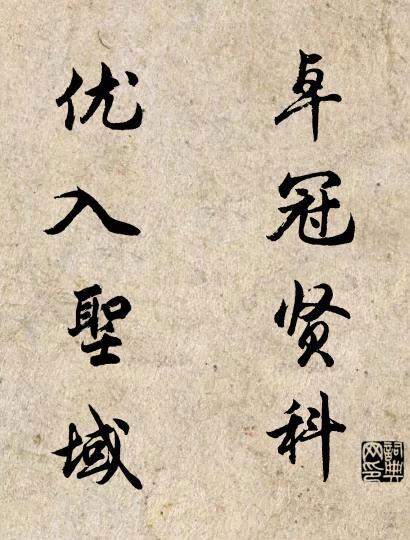 卓冠贤科
优入聖域
詞典網印